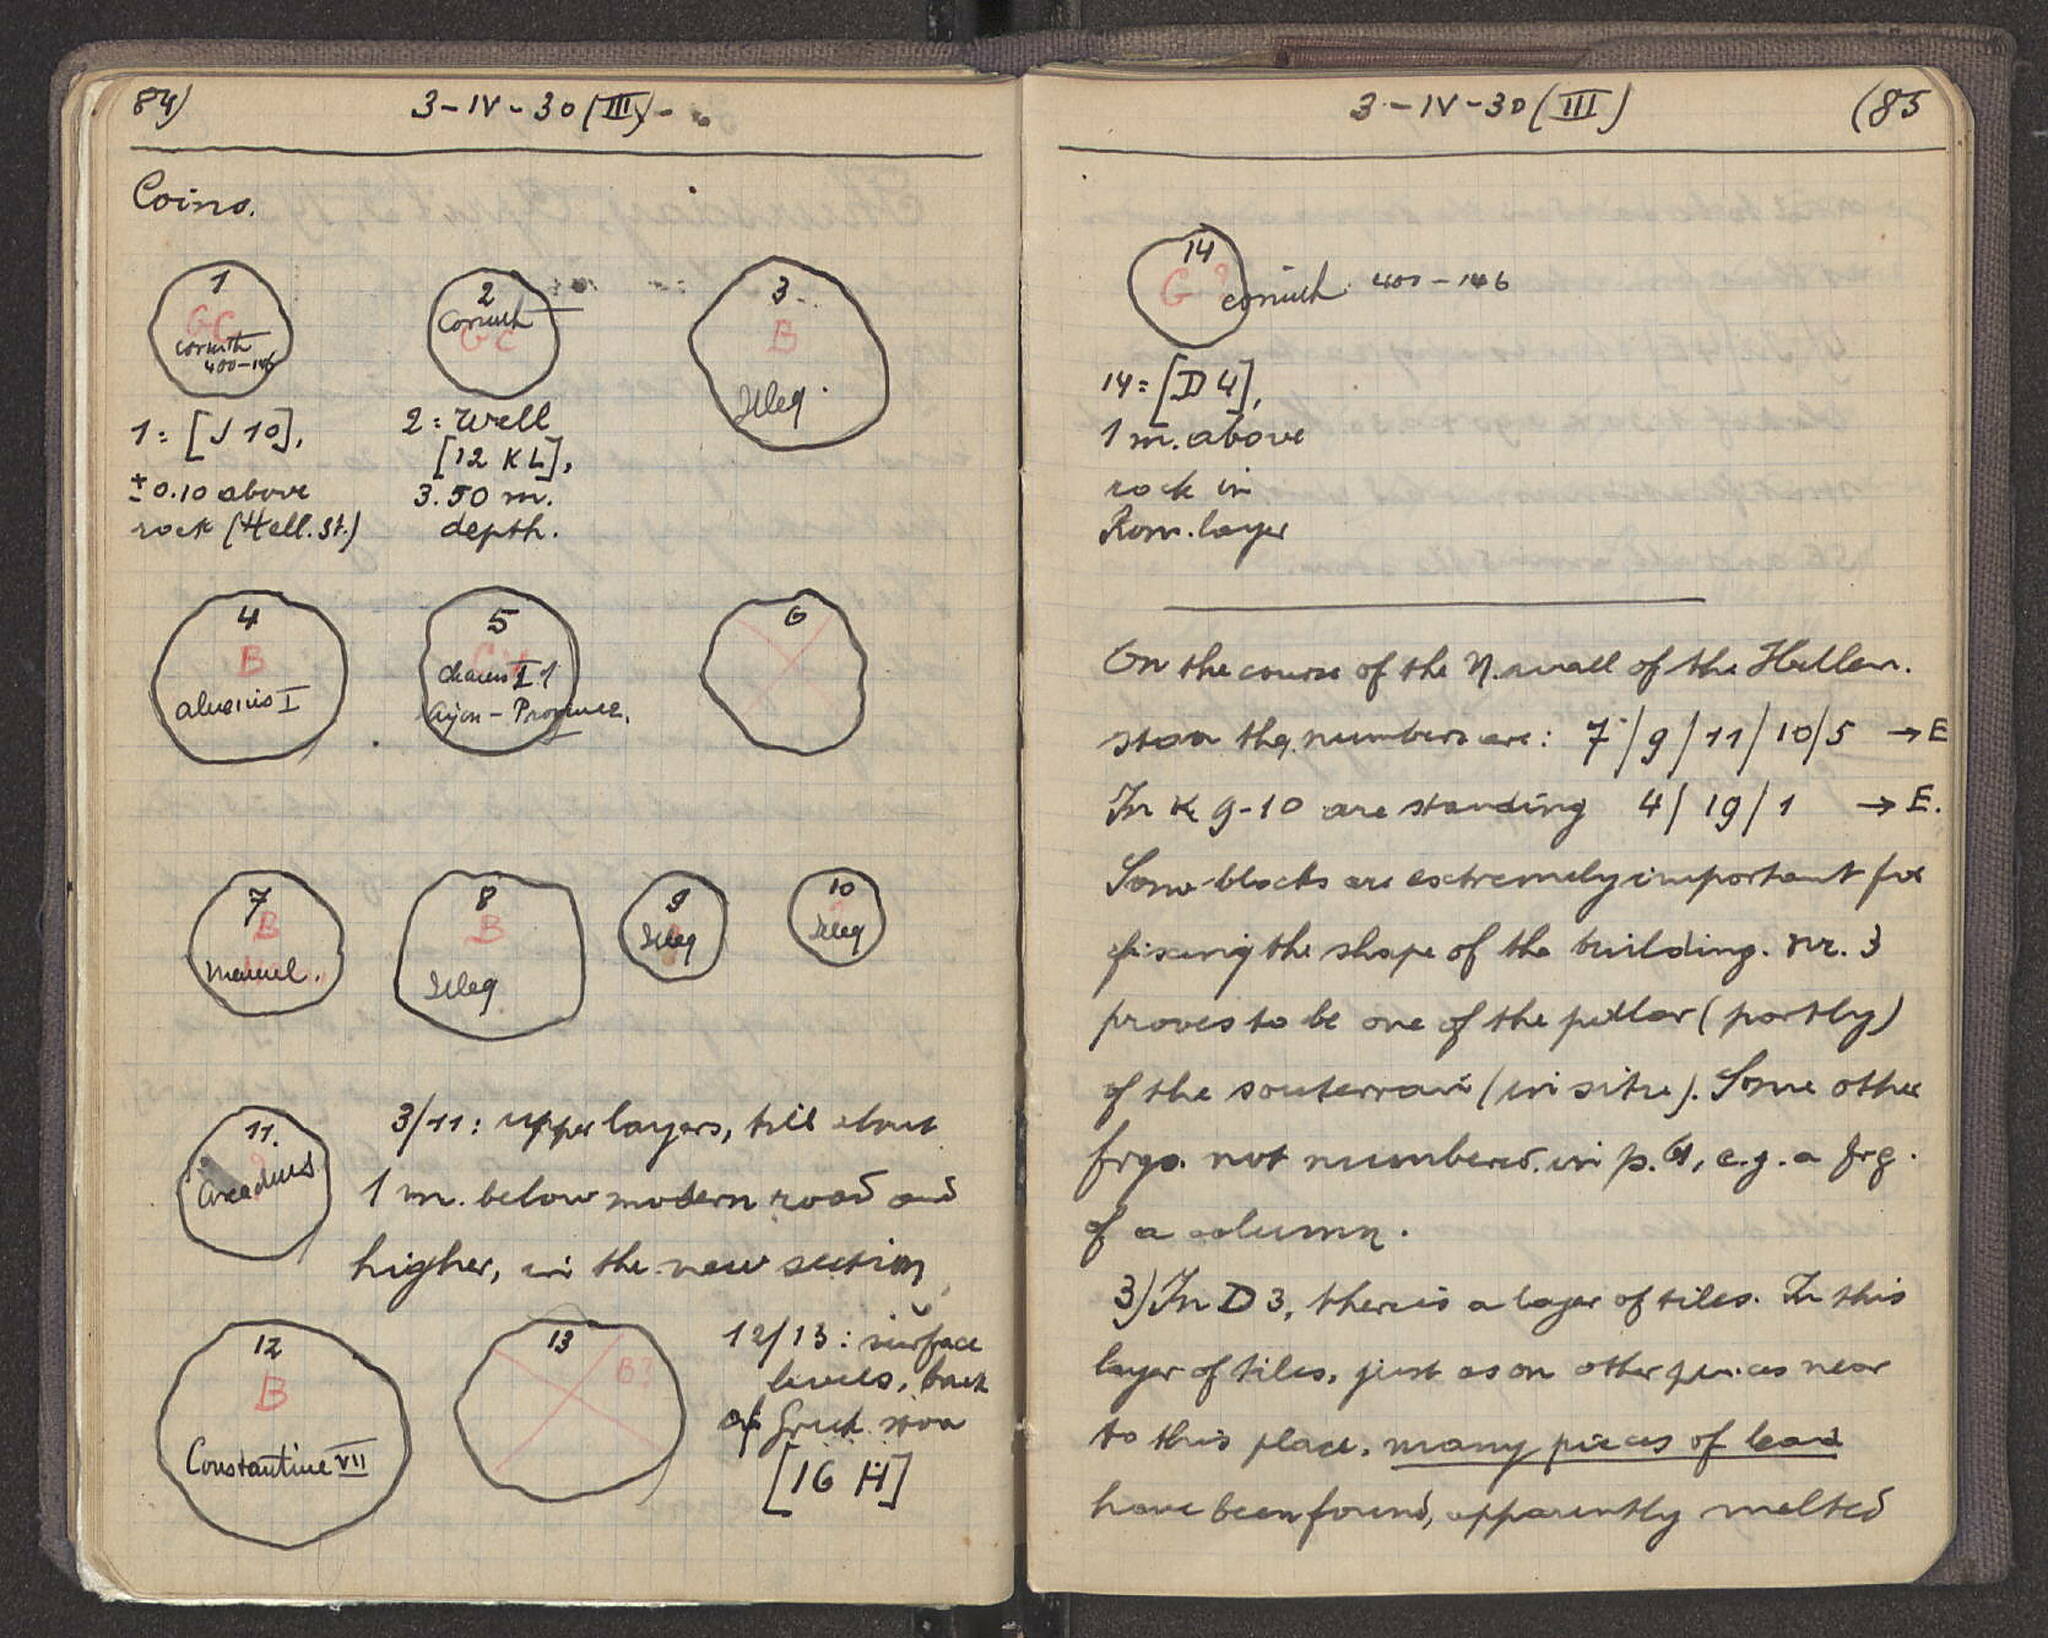 84)
3-IV-30 (III)
Coins.
1
GC
corinth
400-146
2
Corinth
GC
3
B
Illeg.
1 = [J 10],
± 0.10 above
rock (Hell. St.)
2 = Well
[12 KL],
3.50 m.
depth.
4
B
Alexius I
5
6
7
B
Manuel.
8
B
Illeg
9
Illeg
10
Illeg
11.
Arcadius
3/11: upper layers, till about
1 m. below modern road and
higher, in the new section
12
B
Constantine VII
13
B?
12/13: surface
levels, back
of Greek stoa
[16 H]
3-IV-30 (III)
(85
14
G ?
corinth 400-146
14 = [D 4],
1 m. above
rock in
Rom. layer
On the course of the N. wall of the Hellen.
stoa the numbers are: 7/9/11/10/5 → E
In K 9-10 are standing 4/19/1 → E.
Some blocks are extremely important for
fixing the shape of the building. Nr. 3
proves to be one of the pillar (partly)
of the souterrain (in situ). Some other
frgs. not numbered in p. , e.g. a frg.
of a column.
3) In D 3, there is a layer of tiles. In this
layer of tiles, just as on other places near
to this place, many pieces of lead
have been found, apparently melted